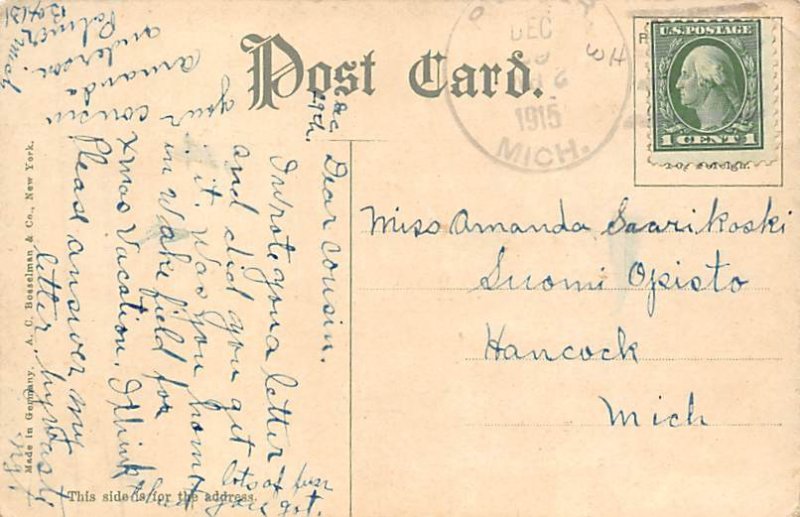 Post Card.
DEC
1915
MICH.
U.S. POSTAGE
1 CENT 1
Miss Amanda Saarikoski
Suomi Opisto
Hancock
Mich
Dec
29th.
Dear cousin.
I wrote you a letter
and did you get
it. Was you home
in Wakefield for
Xmas Vacation. I think
you had lots of fun
you got.
Please answer my
letter
your cousin
Amanda
Anderson.
Palmer Mich
Box 131
Made in Germany. A. C. Bosselman & Co., New York.
This side is for the address.